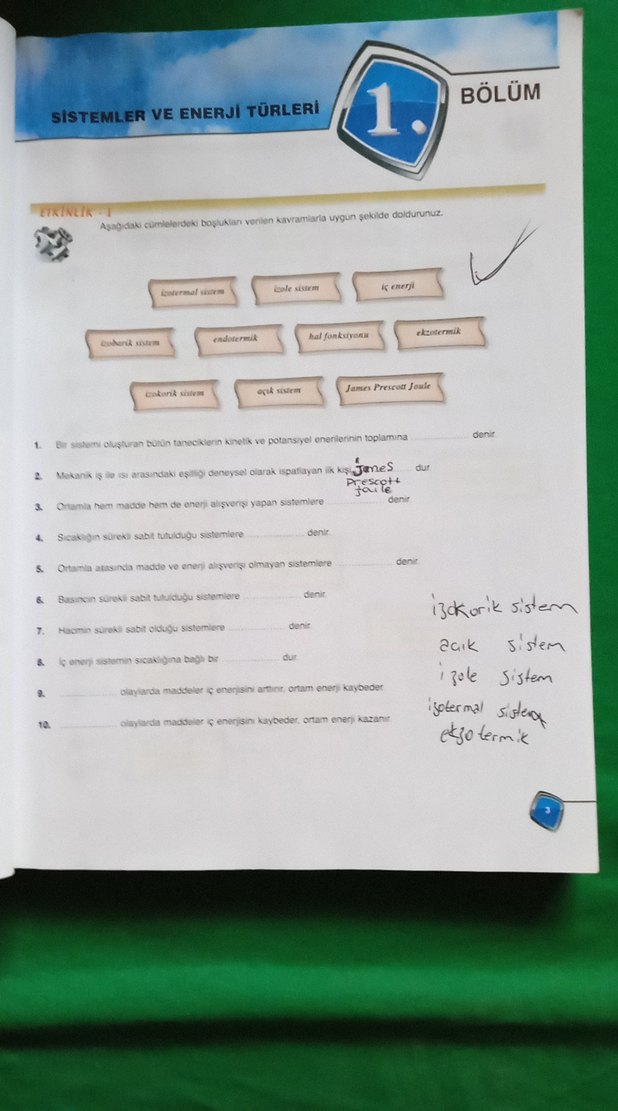 SİSTEMLER VE ENERJİ TÜRLERİ
1.
BÖLÜM
ETKİNLİK - 1
Aşağıdaki cümlelerdeki boşlukları verilen kavramlarla uygun şekilde doldurunuz.
izotermal sistem
izole sistem
iç enerji
izobarik sistem
endotermik
hal fonksiyonu
ekzotermik
izokorik sistem
açık sistem
James Prescott Joule
1. Bir sistemi oluşturan bütün taneciklerin kinetik ve potansiyel enerilerinin toplamına .................. denir.
2. Mekanik iş ile ısı arasındaki eşitliği deneysel olarak ispatlayan ilk kişi James dur.
Prescott
Jaule
3. Ortamla hem madde hem de enerji alışverişi yapan sistemlere .................. denir.
4. Sıcaklığın sürekli sabit tutulduğu sistemlere .................. denir.
5. Ortamla arasında madde ve enerji alışverişi olmayan sistemlere .................. denir.
6. Basıncın sürekli sabit tutulduğu sistemlere .................. denir.
7. Hacmin sürekli sabit olduğu sistemlere .................. denir.
8. İç enerji sistemin sıcaklığına bağlı bir .................. dur.
9. .................. olaylarda maddeler iç enerjisini arttırır, ortam enerji kaybeder.
10. .................. olaylarda maddeler iç enerjisini kaybeder, ortam enerji kazanır.
izokorik sistem
acık sistem
izole sistem
izotermal sistem
ekzotermik
3